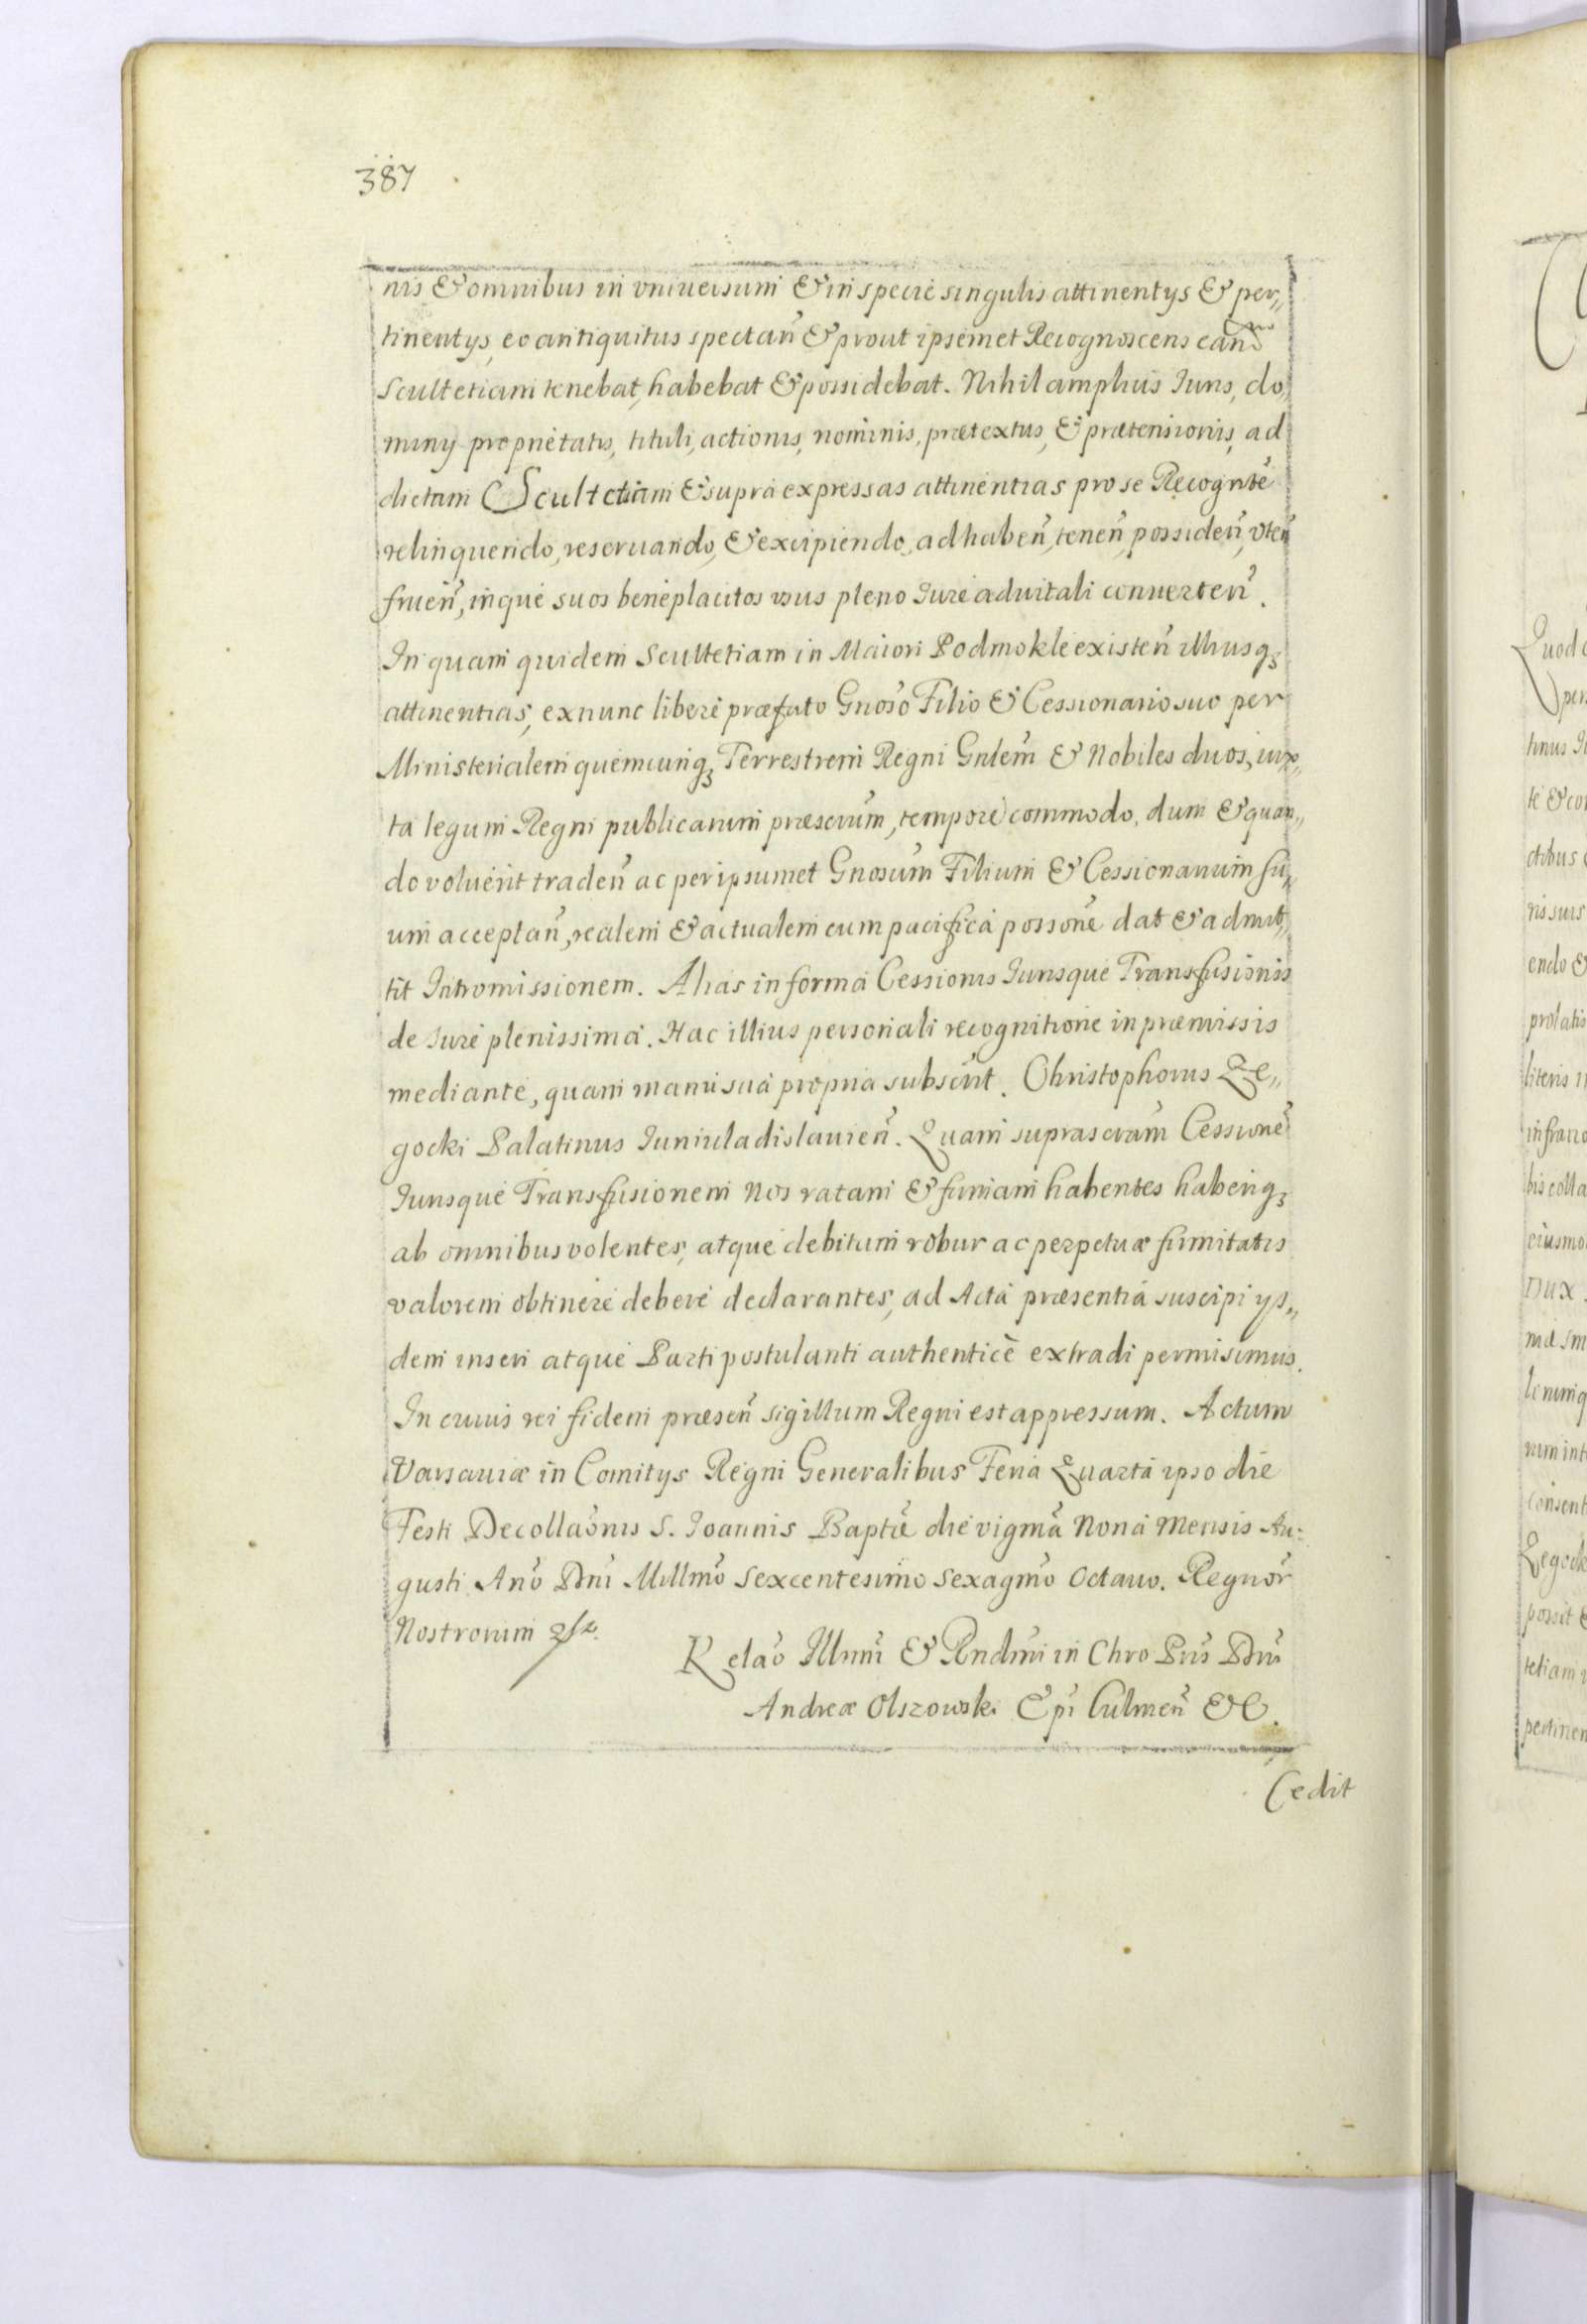 387
nis & omnibus in vniuersum & in specie singulis attinentys & per„
tinentys, eo antiquitus spectan̄ & prout ipsemet Recognoscens eand
Scultetiam tenebat, habebat & possidebat. Nihil amplius Iuris, do„
miny proprietatis, tituli, actionis, nominis, prætextus, & prætensionis, ad
dictam Scultetiam & supra expressas attinentias pro se Recognte
relinquendo, reseruando, & excipiendo, ad haben̄, tenen̄, possiden̄, vten̄
fruen̄, inque suos beneplacitos vsus pleno Iure aduitali conuerten̄.
In quam quidem Scultetiam in Maiori Podmokle existen̄ illiusqꝫ
attinentias, ex nunc libere præfato Gnoso Filio & Cessionario suo per
Ministerialem quemcunqꝫ Terrestrem Regni Gnlem & Nobiles duos, iux„
ta legum Regni publicarum præscrum, tempore commodo, dum & quan„
do voluerit traden̄ ac per ipsumet Gnosum Filium & Cessionarium su„
um acceptan̄, realem & actualem cum pacifica possone dat & admit„
tit Intromissionem. Alias in forma Cessionis Iurisque Transfusionis
de iure plenissima. Hac illius personali recognitione in præmissis
mediante, quam manu sua propria subscrit. Christophorus Ze„
gocki Palatinus Iuniuladislauien̄. Quam suprascram Cessione
Iurisque Transfusionem Nos ratam & firmam habentes haberiqꝫ
ab omnibus volentes, atque debitum robur ac perpetuæ firmitatis
valorem obtinere debere declarantes, ad Acta præsentia suscipi ys„
dem inseri atque Parti postulanti authentice extradi permisimus.
In cuius rei fidem præsen̄ sigillum Regni est appressum. Actum
Varsauiæ in Comitys Regni Generalibus Feria Quarta ipso die
Festi Decollaonis S. Ioannis Baptæ die vigma Nona Mensis Au:
gusti Ano Dni Millmo Sexcentesimo Sexagmo Octauo. Regnor
Nostrorum
Relao Illrmi & Rndmi in Chro Pris Dni
Andreæ Olszowski Epi Culmen̄ &c.
Cedit